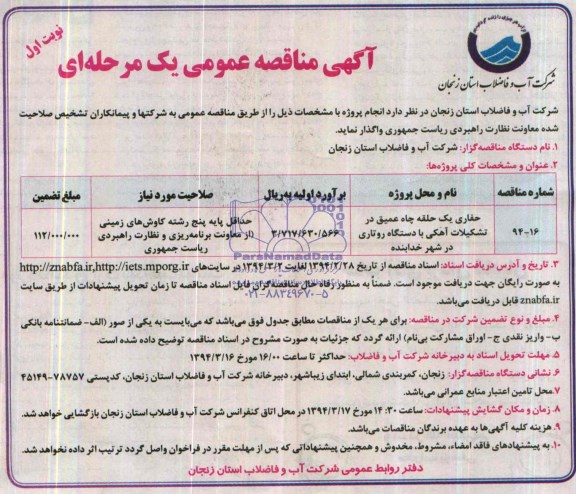 نوبت اول
آگهی مناقصه عمومی یک مرحله‌ای
شرکت آب و فاضلاب استان زنجان
شرکت آب و فاضلاب استان زنجان در نظر دارد انجام پروژه با مشخصات ذیل را از طریق مناقصه عمومی به شرکتها و پیمانکاران تشخیص صلاحیت
شده معاونت نظارت راهبردی ریاست جمهوری واگذار نماید.
۱. نام دستگاه مناقصه‌گزار: شرکت آب و فاضلاب استان زنجان
۲. عنوان و مشخصات کلی پروژه‌ها:
شماره مناقصه نام و محل پروژه برآورد اولیه به‌ریال صلاحیت مورد نیاز مبلغ تضمین
۹۴-۱۶ حفاری یک حلقه چاه عمیق در تشکیلات آهکی با دستگاه روتاری در شهر خدابنده ۳/۷۱۷/۶۳۰/۵۶۶ حداقل پایه پنج رشته کاوش‌های زمینی (از معاونت برنامه‌ریزی و نظارت راهبردی ریاست جمهوری ۱۱۲/۰۰۰/۰۰۰
ParsNamadData
۰۲۱-۸۸۳۴۹۶۷۰-۵
۳. تاریخ و آدرس دریافت اسناد: اسناد مناقصه از تاریخ ۱۳۹۴/۲/۲۸ لغایت ۱۳۹۴/۳/۲ در سایت‌های http://znabfa.ir,http://iets.mporg.ir
به صورت رایگان جهت دریافت موجود است. ضمناً به منظور رفاه حال مناقصه‌گران فایل اسناد مناقصه تا زمان تحویل پیشنهادات از طریق سایت
znabfa.ir قابل دریافت می‌باشد.
۴. مبلغ و نوع تضمین شرکت در مناقصه: برای هر یک از مناقصات مطابق جدول فوق می‌باشد که می‌بایست به یکی از صور (الف- ضمانتنامه بانکی
ب- واریز نقدی ج- اوراق مشارکت بی‌نام) ارائه گردد که جزئیات به صورت مشروح در اسناد مناقصه توضیح داده شده است.
۵. مهلت تحویل اسناد به دبیرخانه شرکت آب و فاضلاب: حداکثر تا ساعت ۱۶/۰۰ مورخ ۱۳۹۴/۳/۱۶
۶. نشانی دستگاه مناقصه‌گزار: زنجان، کمربندی شمالی، ابتدای زیباشهر، دبیرخانه شرکت آب و فاضلاب استان زنجان، کدپستی ۷۸۷۵۷-۴۵۱۴۹
۷. محل تامین اعتبار منابع عمرانی می‌باشد.
۸. زمان و مکان گشایش پیشنهادات: ساعت ۱۴:۳۰ مورخ ۱۳۹۴/۳/۱۷ در محل اتاق کنفرانس شرکت آب و فاضلاب استان زنجان بازگشایی خواهد شد.
۹. هزینه کلیه آگهی‌ها به عهده برندگان مناقصات می‌باشد.
۱۰. به پیشنهادهای فاقد امضاء، مشروط، مخدوش و همچنین پیشنهاداتی که پس از مهلت مقرر در فراخوان واصل گردد ترتیب اثر داده نخواهد شد.
دفتر روابط عمومی شرکت آب و فاضلاب استان زنجان